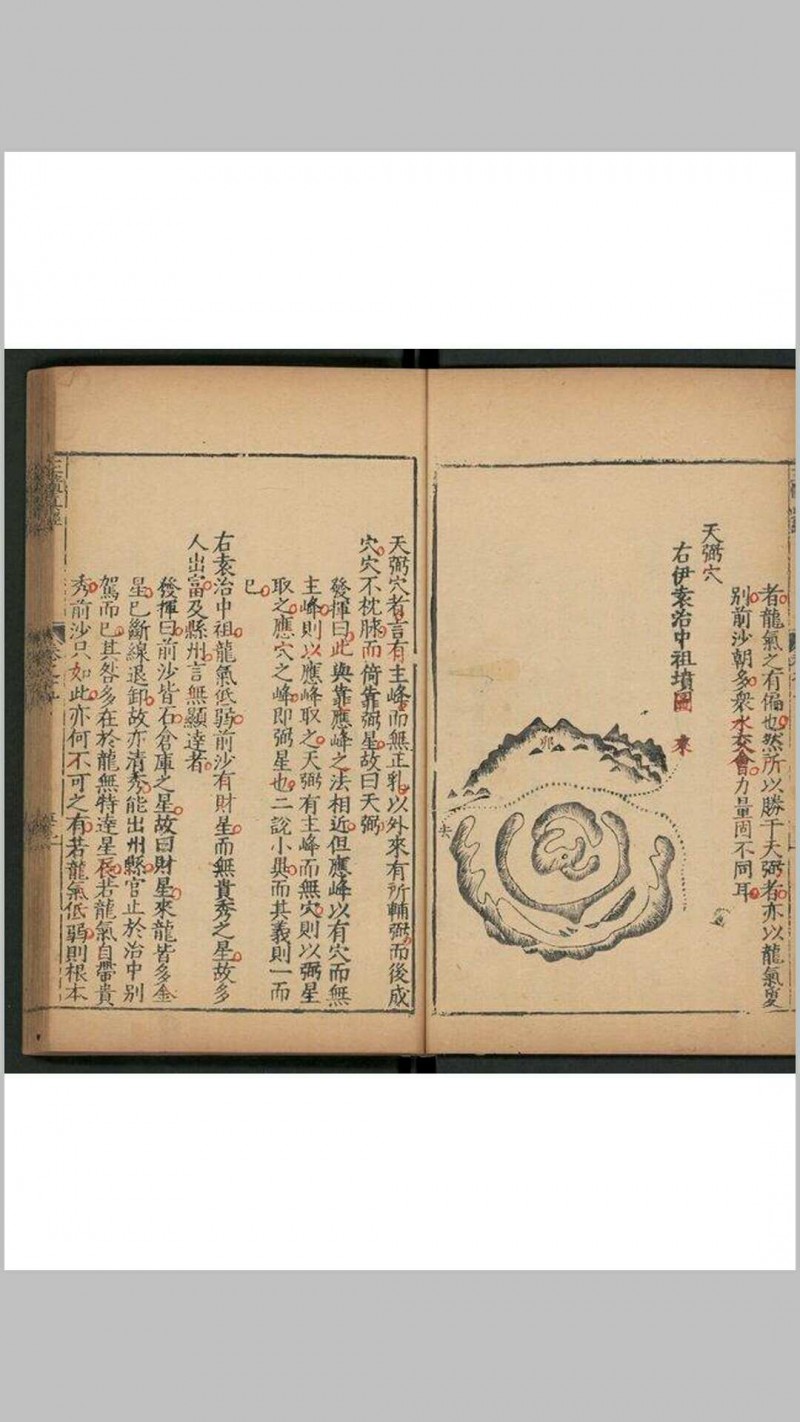 者龍氣之有偏也然所以勝于天弼者亦以龍氣夐
別前沙朝多衆水交會力量固不同耳
天弼穴
右伊袁治中祖墳圖
來
卯
未
天弼穴者言有主峰而無正乳以外來有所輔弼而後成
穴穴不枕脉而倚靠弼星故曰天弼
發揮曰此與靠應峰之法相近但應峰以有穴而無
主峰則以應峰取之天弼有主峰而無穴則以弼星
取之應穴之峰即弼星也二說小異而其義則一而
巳
右袁治中祖龍氣低弱前沙有財星而無貴秀之星故多
人出富及縣州言無顯達者
發揮曰前沙皆石倉庫之星故曰財星來龍皆多金
星巳斷線退卸故亦清秀能出州縣官止於治中別
駕而巳其咎多在於龍無特達星辰若龍氣自帶貴
秀前沙只如此亦何不可之有若龍氣低弱則根本